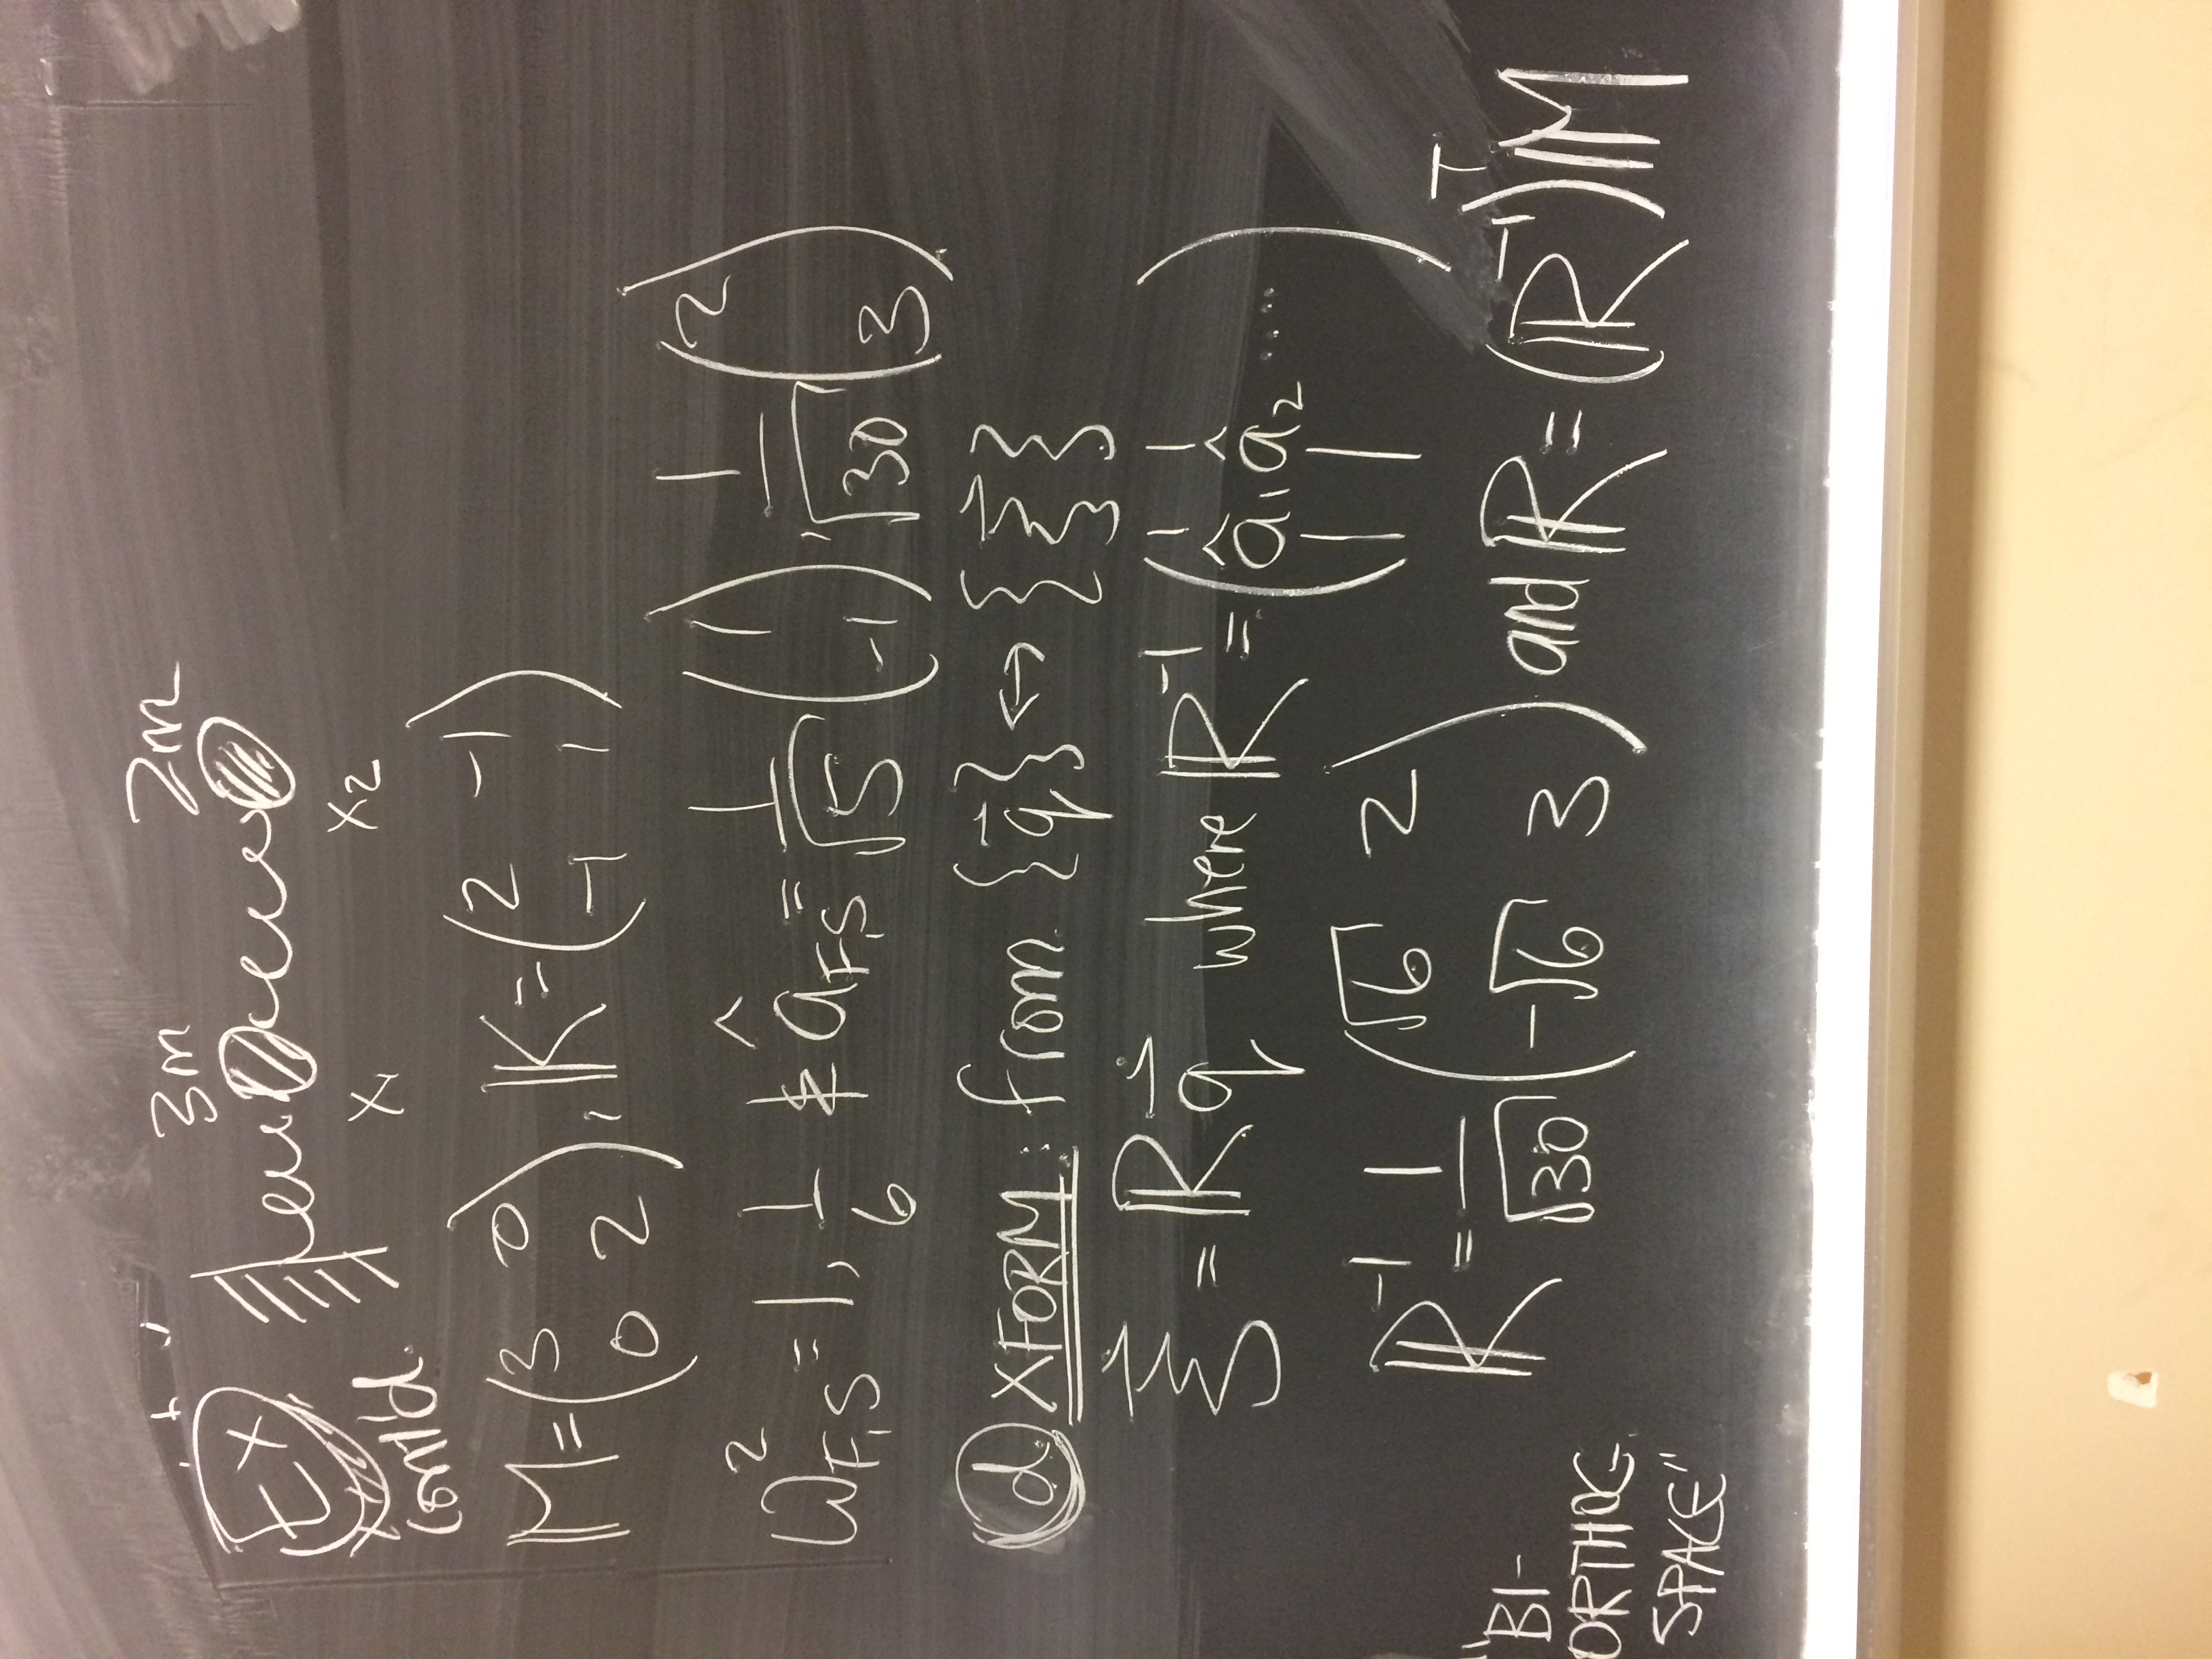 Ex 3m 2m
cont'd. x₁ x₂
M = (3 0 / 0 2), K = (2 -1 / -1 1)
ω²_F,S = 1, 1/6 & â_F,S = 1/√5 (1 / -1) 1/√30 (2 / 3)
(d) XFORM: from {q⃗} ↔ {ξ⃗}
ξ⃗ = R q⃗ where R⁻¹ = (â₁ â₂ ....)
R⁻¹ = 1/√30 (√6 2 / -√6 3) and R = (R⁻¹)ᵀ M
"BI-
ORTHOG
SPACE"